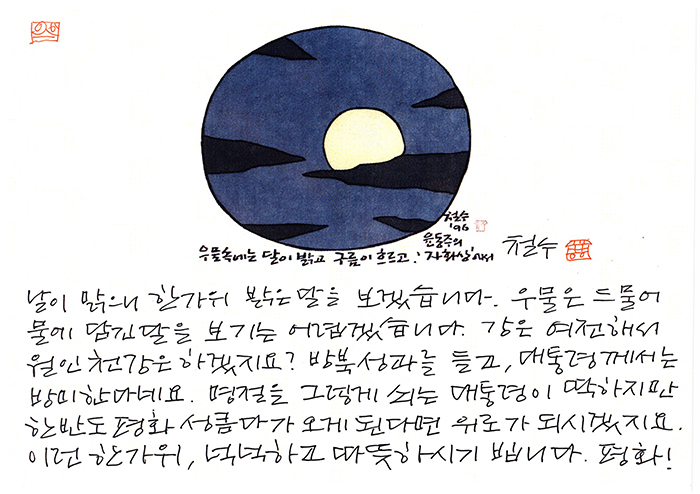 철수
'96
윤동주의
우물속에는 달이 밝고 구름이 흐르고.' '자화상'에서
철수
날이 맑으니 한가위 밝은 달을 보겠습니다. 우물은 드물어
물에 담긴 달을 보기는 어렵겠습니다. 강은 여전해서
월인천강은 하겠지요? 방북성과를 들고, 대통령께서는
방미한다네요. 명절을 그렇게 쇠는 대통령이 딱하지만
한반도 평화 성큼 다가 오게 된다면 위로가 되시겠지요.
이런 한가위, 넉넉하고 따뜻하시기 빕니다. 평화!